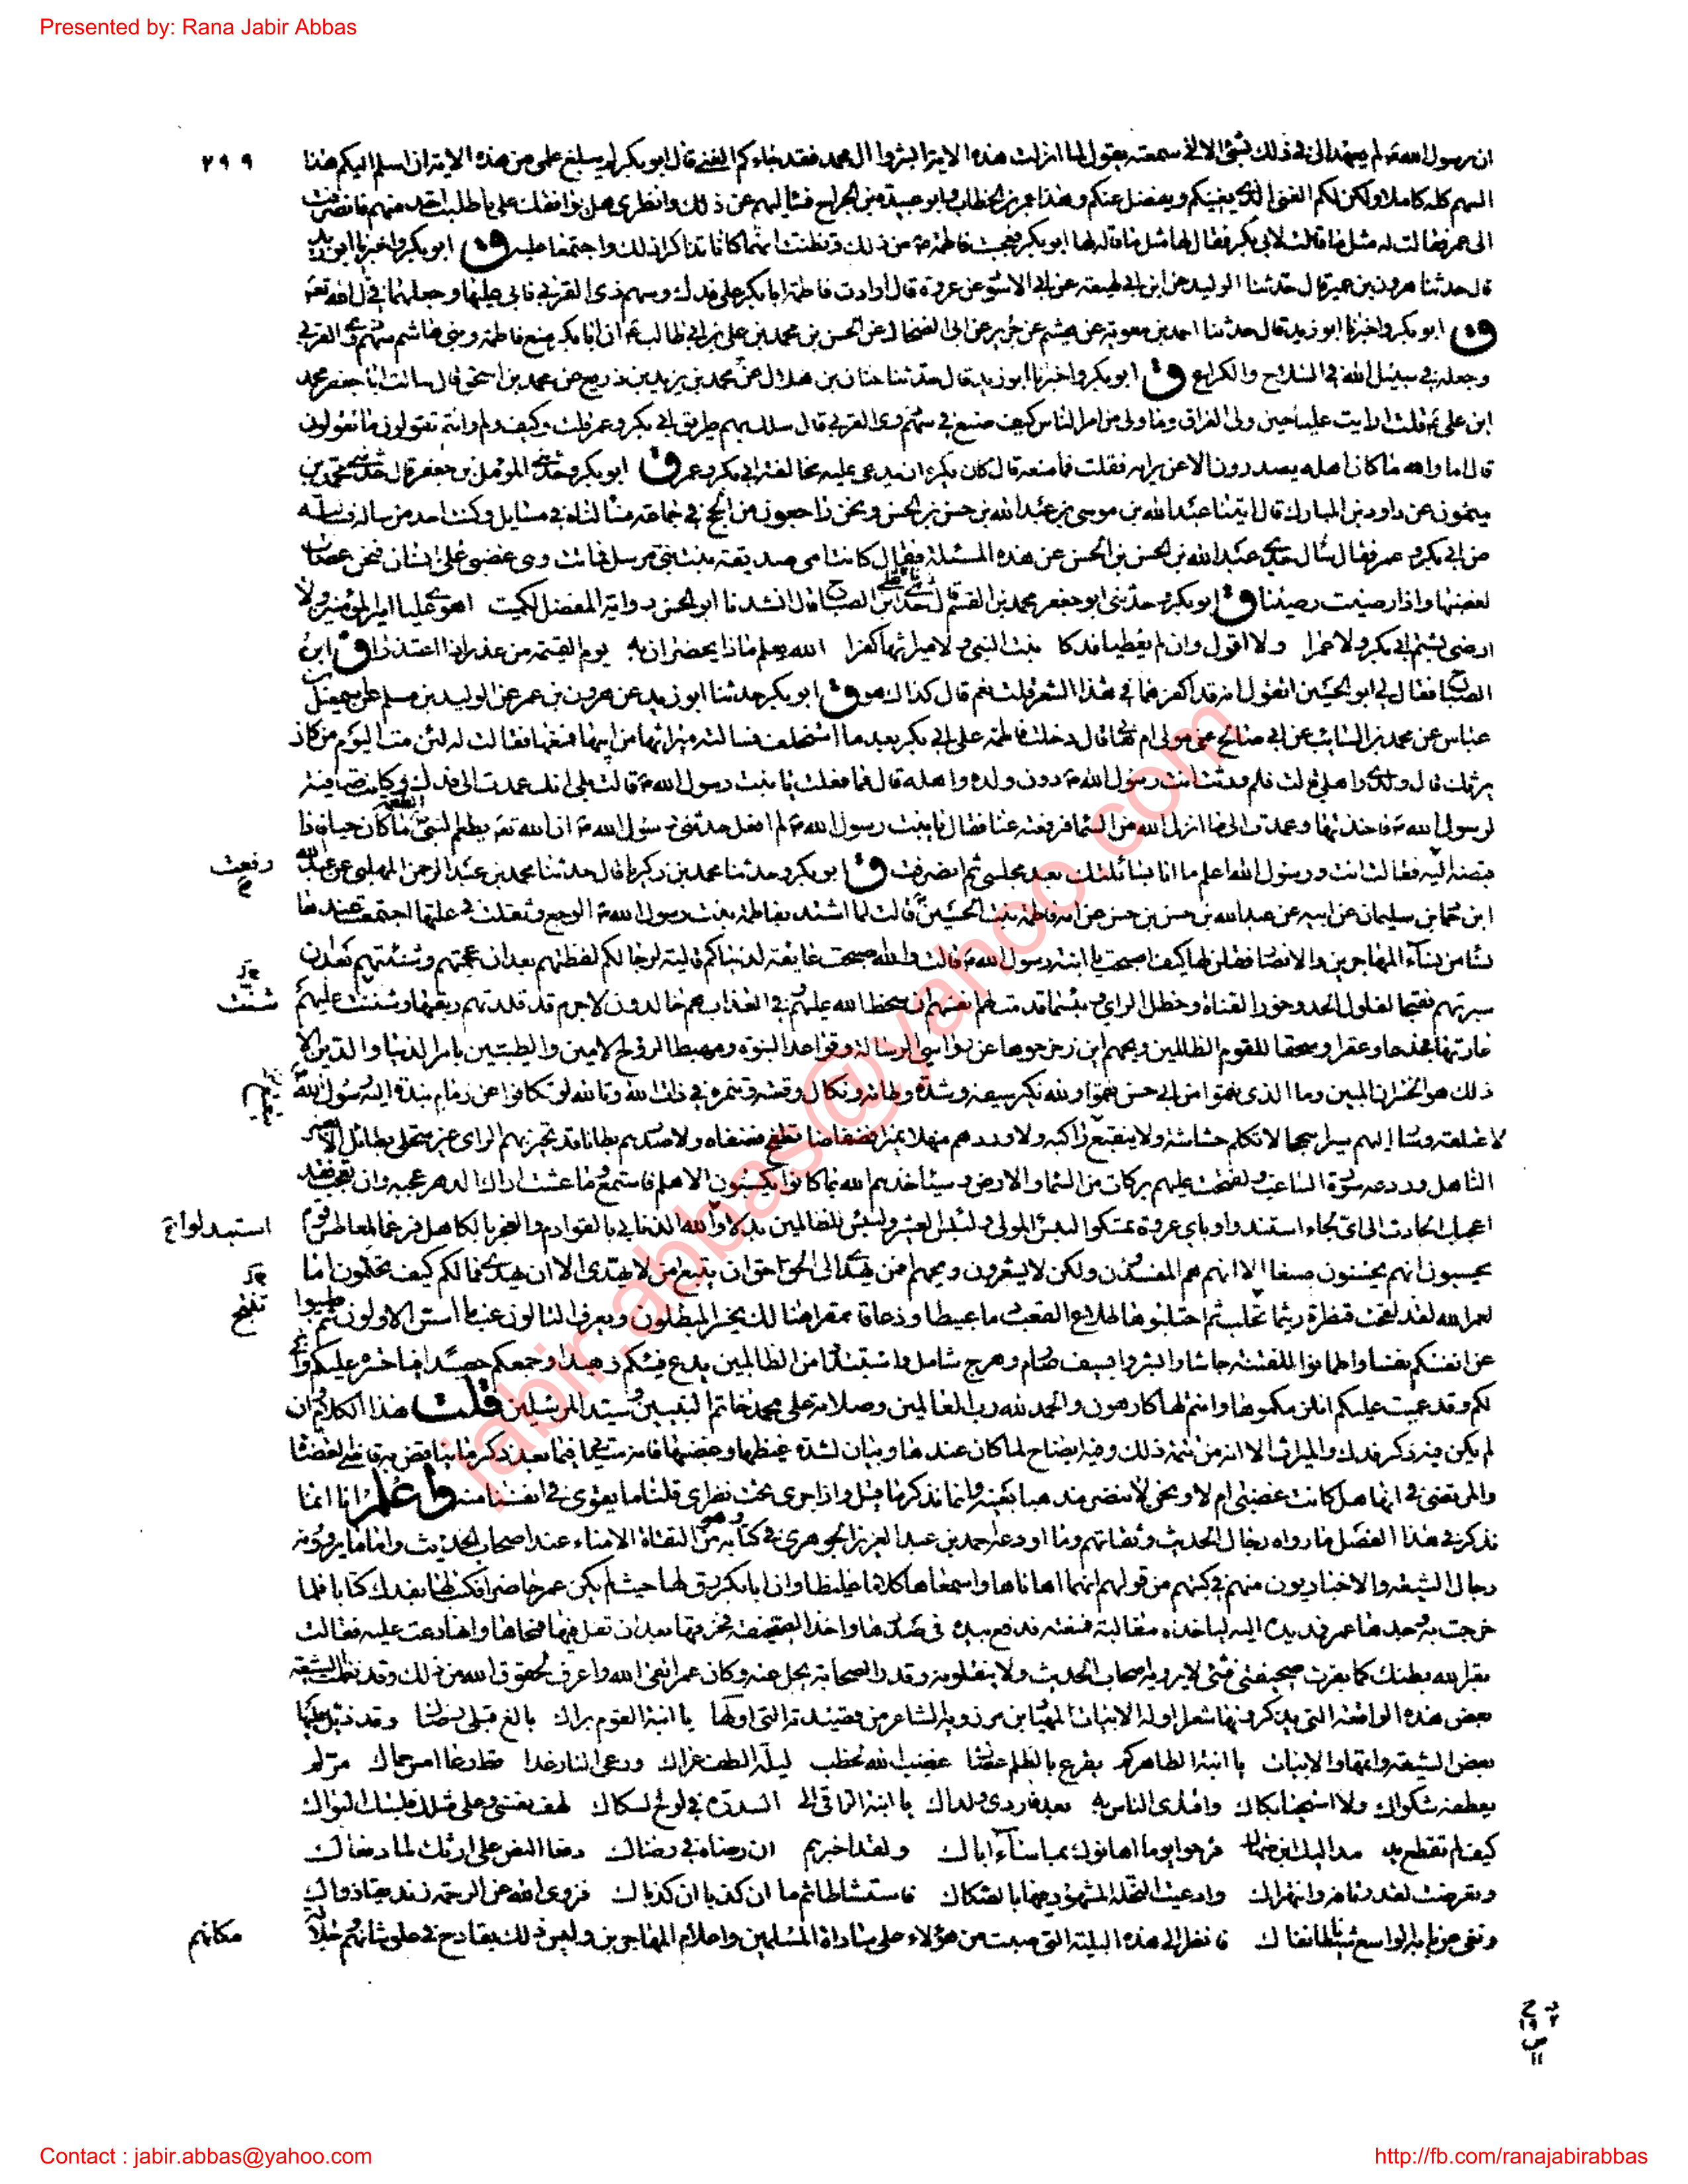 Presented by: Rana Jabir Abbas
٢٩٩
ان رسول الله ص لم يعهد الى فى ذلك بشئ الا انى سمعته يقول لما انزلت هذه الاية ابشروا ال محمد فقد جاءكم الغنى قال ابو بكر لم يبلغ علمى من هذه الاية ان اسلم اليكم هذا
السهم كله كاملا ولكن لكم الغنى الذى يغنيكم ويفضل عنكم وهذا عمر بن الخطاب وابو عبيدة بن الجراح فسئاليهم عن ذلك وانظرى هل يوافقك على ما طلبت احد منهم فانصرفت
الى عمر فقالت له مثل ما قالت لابى بكر فقال لها مثل ما قاله لها ابو بكر فعجبت فاطمة ع من ذلك وتظنت انهما كانا تذاكرا ذلك واجتمعا عليه ق ابو بكر واخبرنا ابو زيد
قال حدثنا هرون بن عمير قال حدثنا الوليد عن ابن ابى لهيعة عن ابى الاسود عن عروة قال ارادت فاطمة ابا بكر على فدك وسهم ذى القربى فابى عليها وجعلهما فى مال الله تعالى
ق ابو بكر واخبرنا ابو زيد قال حدثنا احمد بن معوية عن هيثم عن جويبر عن ابى الضحاك عن الحسن بن محمد بن على بن ابى طالب ع ان ابا بكر منع فاطمة وبنى هاشم سهم ذى القربى
وجعله فى سبيل الله فى السلاح والكراع ق ابو بكر واخبرنا ابو زيد قال حدثنا حنان بن هلال عن محمد بن يزيد بن ذريع عن محمد بن اسحق قال سالت ابا جعفر محمد
ابن على ع قلت ارايت عليا حين ولى العراق وما ولى من امر الناس كيف صنع فى سهم ذى القربى قال سلك بهم طريق ابى بكر وعمر قلت وكيف ولم وانتم تقولون ما تقولون
قال اما والله ما كان اهله يصدرون الا عن رايه فقلت فما منعه قال كان يكره ان يدعى عليه مخالفة ابى بكر وعمر ق ابو بكر وحدثنى المؤمل بن جعفر قال حدثنى محمد بن
ميمون عن داود بن المبارك قال اتينا عبد الله بن موسى بن عبد الله بن حسن بن الحسن ونحن راجعون من الحج فى جماعة فسالناه فى مسايل وكنت احد من ساله فسالته
عن ابى بكر و عمر فقال سئل جدى عبد الله بن الحسن بن الحسن عن هذه المسئلة فقال كانت امى صديقة بنت نبى مرسل فماتت وهى غضبى على انسان فنحن غضاب
لغضبها واذا رضيت رضينا ق ابو بكر وحدثنى ابو جعفر محمد بن القسم قال حدثنى على بن الصباح قال انشدنا ابو الحسن رواية المفضل للكميت اهوى عليا امير المؤمنين ولا
ارضى بشتم ابى بكر ولا عمرا ولا اقول وان لم يعطيا فدكا بنت النبى ولا ميراثها كفرا الله يعلم ماذا يحضران به يوم القيمة من عذر اذا اعتذرا ق ابن
الصباح فقال لى ابو الحسن اتقول انه قد اكفرهما فى هذا الشعر قلت نعم قال كذاك هو ق ابو بكر حدثنا ابو زيد عن هرون بن عمر عن الوليد بن مسلم عن اسمعيل بن
عباس عن محمد بن السائب عن ابى صالح عن مولى ام هانى قال دخلت فاطمة على ابى بكر بعد ما استخلف فسالته ميراثها من ابيها فمنعها فقالت له لئن مت اليوم من كان
يرثك قال ولدى واهلى قالت فلم ورثت انت رسول الله ص دون ولده واهله قال فما فعلت يا بنت رسول الله ص قالت بلى انك عمدت الى فدك وكانت صافية
لرسول الله ص فاخذتها وعمدت الى ما انزل الله من السماء فرفعته عنا فقال يا بنت رسول الله ص لم افعل حدثنى رسول الله ص ان الله تعالى يطعم النبى الطعمة ما كان حيا فاذا
قبضه اليه رفعت فقالت انت ورسول الله اعلم ما انا بسائلتك بعد مجلسى ثم انصرفت ق ابو بكر وحدثنا محمد بن زكريا قال حدثنا محمد بن عبد الرحمن المهلبى عن عبد الله
رفعت
ابن حماد بن سليمان عن ابيه عن عبد الله بن حسن بن حسن عن امه فاطمة بنت الحسين ع قالت لما اشتد بفاطمة بنت رسول الله ص الوجع وثقلت فى علتها اجتمعت عندها
نساء من نساء المهاجرين والانصار فقلن لها كيف اصبحت يا ابنة رسول الله ص قالت والله اصبحت عائفة لدنياكم قالية لرجالكم لفظتهم بعد ان عجمتهم وشنئتهم بعد ان
سبرتهم فقبحا لفلول الحد وخور القناة وخطل الراى وبئسما قدمت لهم انفسهم ان سخط الله عليهم وفى العذاب هم خالدون لا جرم قد قلدتهم ربقتها وشننت عليهم
شنت
غارتها فجدعا وعقرا وسحقا للقوم الظالمين ويحهم اين زحزحوها عن رواسى الرسالة وقواعد النبوة ومهبط الروح الامين والطيبين بامر الدنيا والدين الا
ذلك هو الخسران المبين وما الذى نقموا من ابى حسن نقموا والله نكير سيفه وشدة وطاته ونكال وقعته وتنمره فى ذات الله وتالله لو تكافوا عن زمام نبذه اليه رسول الله
لاعتلقه ولسار اليهم سيرا سجحا لا تكلم حشاشته ولا يتعتع راكبه ولاوردهم منهلا نميرا فضفاضا تطفح ضفتاه ولاصدرهم بطانا قد تحير بهم الراى غير متحلى بطائل الا بغمر
الناهل وردعه سورة الساغب ولفتحت عليهم بركات من السماء والارض وسياخذهم الله بما كانوا يكسبون الا هلم فاستمع وما عشت اراك الدهر عجبه وان تعجب فقد
اعجبك الحادث الى اى لجاء استندوا وباى عروة تمسكوا لبئس المولى ولبئس العشير ولبئس للظالمين بدلا والله الذنابى بالقوادم والعجز بالكاهل فرغما لمعاطس قوم
استبدلوا
يحسبون انهم يحسنون صنعا الا انهم هم المفسدون ولكن لا يشعرون ويحهم افمن يهدى الى الحق احق ان يتبع امن لا يهدى الا ان يهدى فما لكم كيف تحكمون اما
لعمر الله لقد لقحت فنظرة ريثما تحلب ثم احتلبوها طلاع القعب دما عبيطا وذعاقا ممقرا هنالك يخسر المبطلون ويعرف التالون غب ما اسس الاولون ثم طيبوا
تنتج
عن انفسكم نفسا واطمانوا للفتنة جاشا وابشروا بسيف صارم وهرج شامل واستبداد من الظالمين يدع فيئكم زهيدا وجمعكم حصيدا فيا حسرة عليكم وانى
لكم وقد عميت عليكم انلزمكموها وانتم لها كارهون والحمد لله رب العالمين وصلاته على محمد خاتم النبيين وسيد المرسلين قلت هذا الكلام وان
لم يكن فيه ذكر فدك والميراث الا انه من تتمة ذلك وفيه ايضاح لما كان عندها وبيان لشدة غيظها وغضبها فانه سياتى فيما بعد ذكر ما يناقض به قاضى القضاة
والمرتضى فى انها هل كانت غضبى ام لا ونحن لا ننصر مذهبا بعينه وانما نذكر ما قيل واذا جرى بحث نظرى قلنا ما يقوى فى انفسنا منه واعلم انا انما
نذكر فى هذا الفصل ما رواه رجال الحديث وثقاتهم وما اودعه احمد بن عبد العزيز الجوهرى فى كتابه وهو من الثقاة الامناء عند اصحاب الحديث واما ما يرويه
رجال الشيعة والاخباريون منهم فى كتبهم من قولهم انهما اهاناها واسمعاها كلاما غليظا وان ابا بكر رق لها حيث لم يكن عمر حاضرا فكتب لها بفدك كتابا فلما
خرجت به وجدها عمر فمد يده اليه لياخذه مغالبة فمنعته فدفع بيده فى صدرها واخذ الصحيفة فخرقها بعد ان تفل فيها فمحاها وانها دعت عليه فقالت
بقر الله بطنك كما بقرت صحيفتى فشئ لا يرويه اصحاب الحديث ولا ينقلونه وقدر الصحابة يجل عنه وكان عمر اتقى لله واعرف لحقوق الله من ذلك وقد نظمت الشيعة
بعض هذه الواقعة التى يذكرونها شعرا اوله الابيات لمهيار بن مرزويه الشاعر من قصيدته التى اولها يا ابنة القوم تراك بالغ قتلى رضاك وقد ذيل عليها
بعض الشيعة واتمها والابيات يا ابنة الطاهر كم تقرع بالظلم عصاك غضب الله لخطب ليلة الطف عراك ورعى النار غدا قط رعا امس حماك مر لم
يعطفه شكواك ولا استحيا بكاك واقتدى الناس به بعد فاردى ولداك يا ابنة الراقى الى السدرة فى لوح السكاك لهف نفسى وعلى مثلك فلتبك البواك
كيف لم تقطع يد مد اليك ابن صهاك فرحوا يوم اهانوك بما ساء اباك ولقد اخبرهم ان رضاه فى رضاك دفعا النص على ارثك لما دفعاك
وتعرضت لقدر تافه وانتهراك وادعيت النحلة المشهود فيها بالصكاك فاستشاطا ثم ما ان كذبا ان كذباك فزوى الله عن الرحمة زنديقا ذواك
ونفى عن بابه الواسع شيطانا نفاك فانظر الى هذه البلية التى صبت من هؤلاء على سادات المسلمين واعلام المهاجرين وليس ذلك بقادح فى علو شانهم وجلالة
مكانهم
jabir.abbas@yahoo.com
Contact : jabir.abbas@yahoo.com
http://fb.com/ranajabirabbas